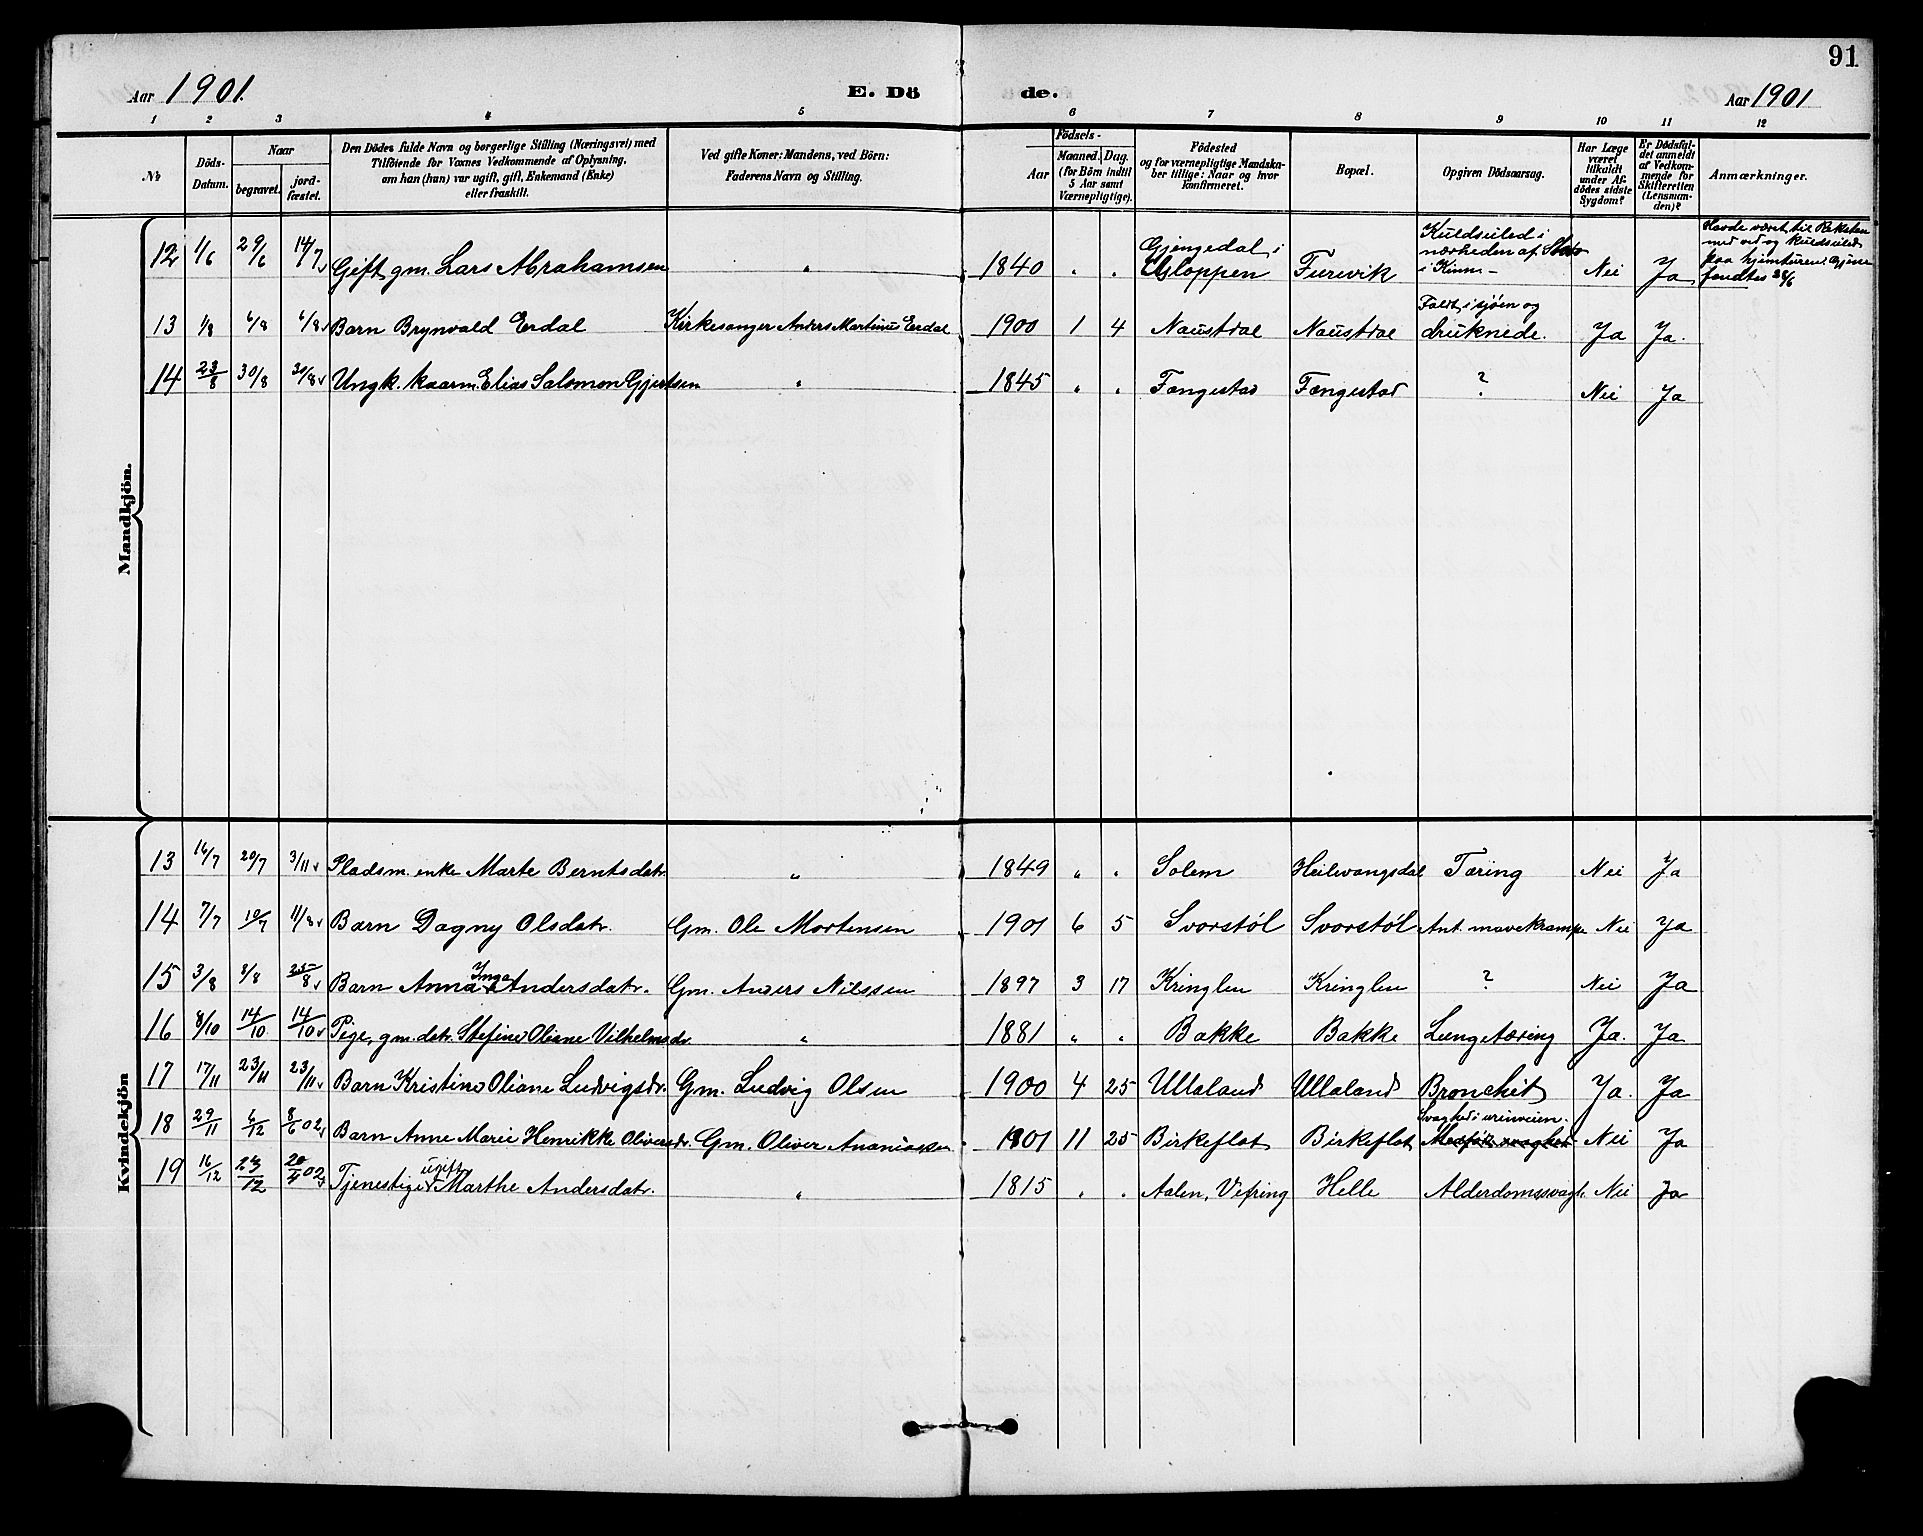 91
Aar 1901. E. Dö de. Aar 1901
1 2 3 4 5 6 7 8 9 10 11 12
No Döds-Datum. Naar begravet. jord-fæstet. Den Dödes fulde Navn og borgerlige Stilling (Næringsvei) med Tilföiende for Voxnes Vedkommende af Oplysning, om han (hun) var ugift, gift, Enkemand (Enke) eller fraskilt. Ved gifte Koner: Mandens, ved Börn: Faderens Navn og Stilling. Aar Födsels- Maaned. Dag. (for Börn indtil 5 Aar samt Værnepligtige). Födested og for værnepligtige Mandska-ber tillige: Naar og hvor konfirmeret. Bopæl. Opgiven Dödsaarsag. Har Læge været tilkaldt under Af-dödes sidste Sygdom? Er Dödsfal-det anmeldt af Vedkom-mende for Skifteretten (Lensman-den)? Anmærkninger.
Mandkjön.
12 1/6 29/6 14/7 Gift gm. Lars Abrahamsen " 1840 " " Gjengedal i Gloppen Furevik Kuldseiled i nærheden af i Kinn - Nei Ja Havde været til med ved og kuldseiled paa hjemturen. fandtes 28/6
13 1/8 6/8 6/8 Barn Brynvald Erdal Kirkesanger Anders Martinus Erdal 1900 1 4 Naustdal Naustdal Faldt i sjöen og druknede. Ja Ja.
14 23/8 30/8 30/8 Ungk. kaarm. Elias Salomon Gjertsen " 1845 " " Fængestad Fængestad ? Nei Ja
Kvindekjön
13 16/7 20/7 3/11 Pladsm. enke Marte Berntsdatr. " 1849 " " Solem Heilevangsdal Tæring Nei Ja
14 7/7 10/7 11/8 Barn Dagny Olsdatr. Gm. Ole Mortensen 1901 6 5 Svorstöl Svorstöl Ant. mavekrampe Nei Ja
15 3/8 8/8 25/8 Barn Anna Inga Andersdatr. Gm. Anders Nilssen 1897 3 17 Kringlen Kringlen ? Nei Ja
16 8/10 14/10 14/10 Pige, gm. datr. Stefine Oliane Vilhelmsdr. " 1881 " " Bakke Bakke Lungetæring Ja. Ja
17 17/11 23/11 23/11 Barn Kristine Oliane Ludvigsdr. Gm. Ludvig Olsen 1900 4 25 Ullaland Ullaland Bronchit Ja. Ja
18 29/11 6/12 8/6 02 Barn Anne Marie Henrikke Oliversdr. Gm. Oliver Ananiassen 1901 11 25 Birkeflot Birkeflot Svaghed i urinveien. Medfödt svaghed Nei Ja
19 16/12 23/12 20/4 02 Tjenestige ugift Marthe Andersdatr. " 1815 " " Aalen, Vefring Helle Alderdomssvagh. Nei Ja